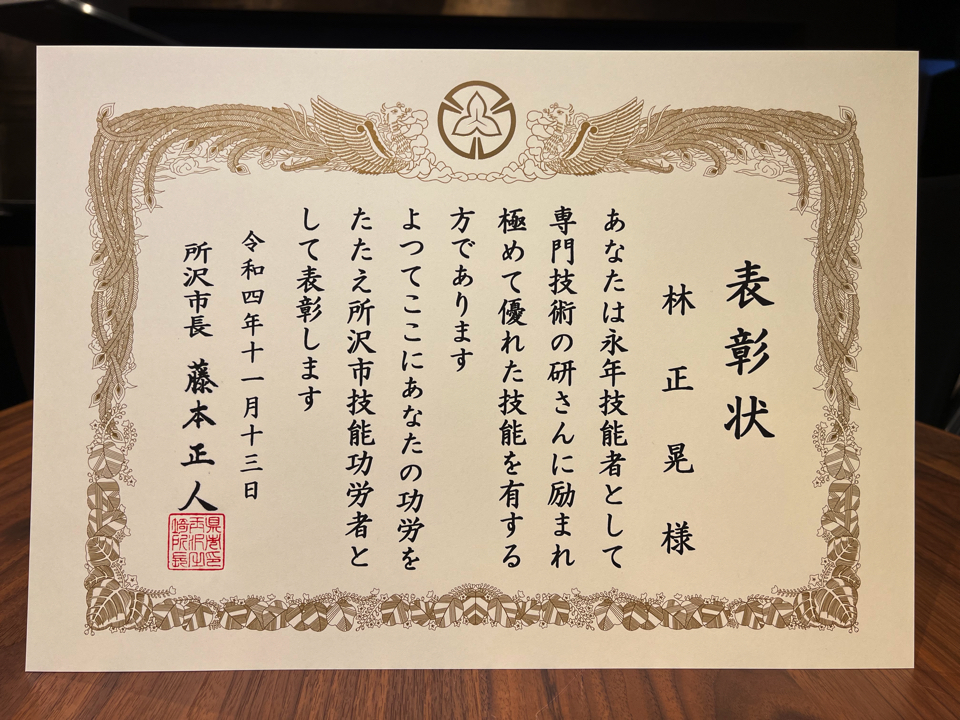 表彰状
林正晃様
あなたは永年技能者として
専門技術の研さんに励まれ
極めて優れた技能を有する
方であります
よつてここにあなたの功労を
たたえ所沢市技能功労者と
して表彰します
令和四年十一月十三日
所沢市長 藤本正人